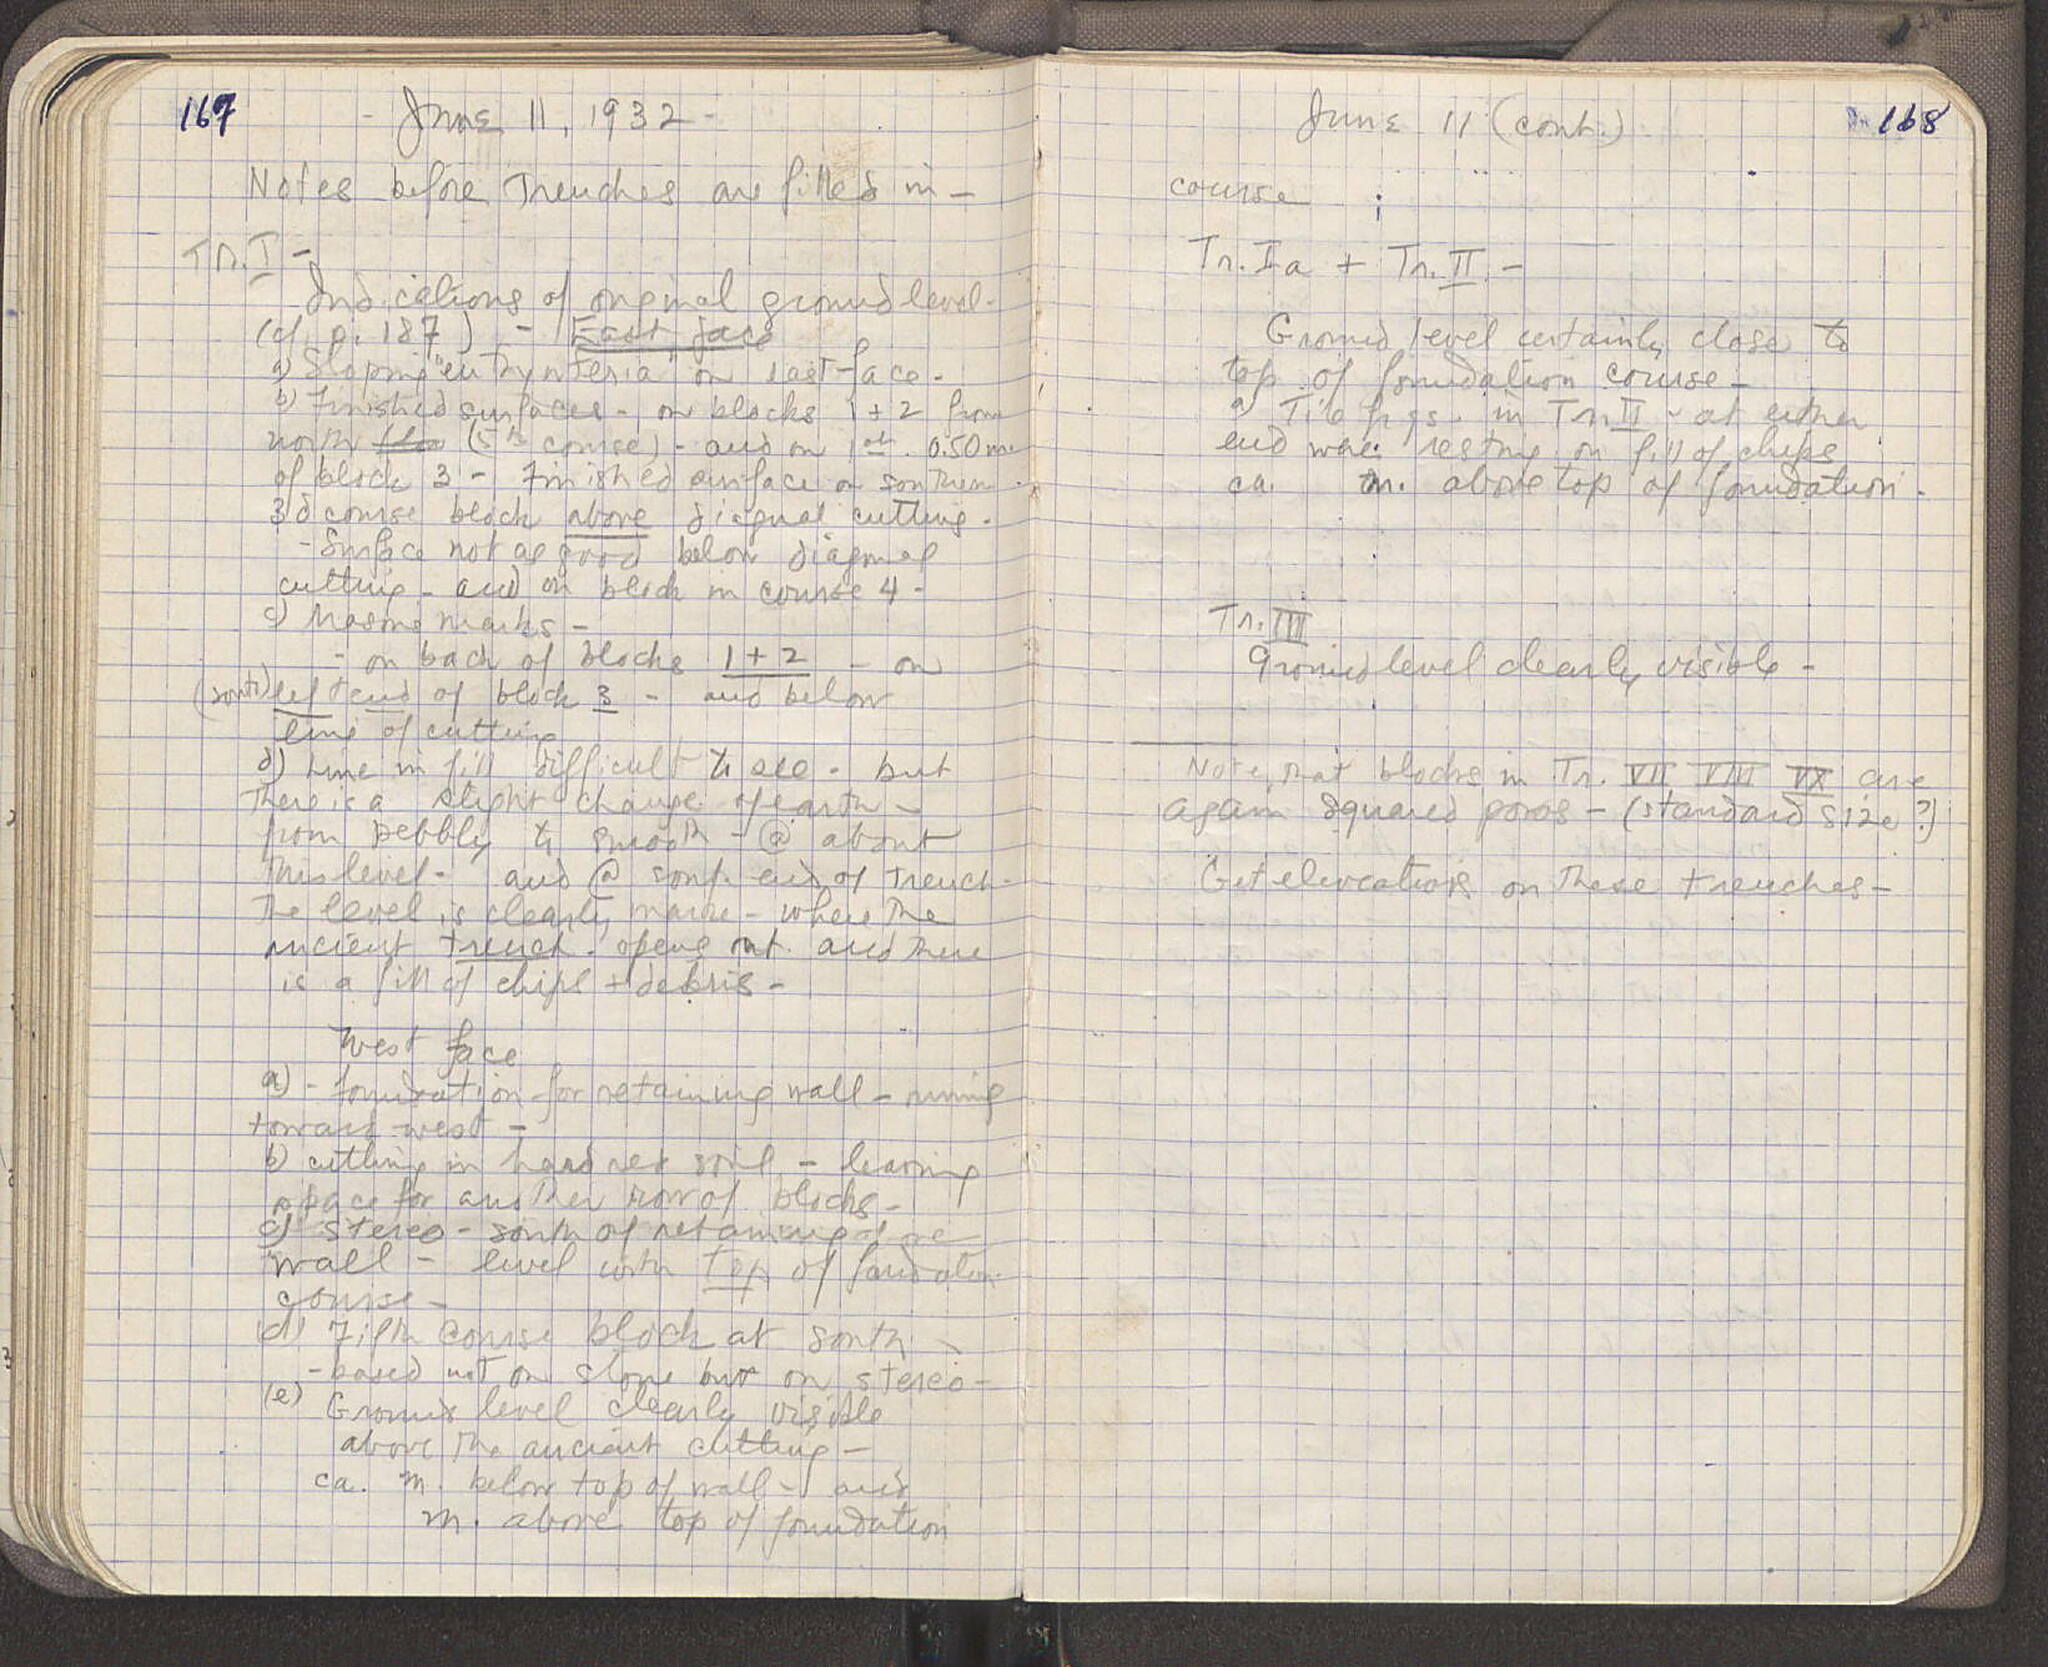 167
- June 11, 1932 -
Notes before Trenches are filled in -
Tr. I -
Indications of original ground level -
(cf p. 187) - East face
a) Sloping "euthynteria" on east face -
b) Finished surfaces - on blocks 1 + 2 from
north (5th course) - and on 1st 0.50 m.
of block 3 - Finished surface on southern
3d course block above diagnal cutting -
- Surface not as good below diagonal
cutting - and on block in course 4 -
c) Masons marks -
- on back of blocks 1 + 2 - on
(south) left end of block 3 - and below
line of cutting
d) Line in fill difficult to see - but
there is a slight change of earth -
from pebbly to smooth - @ about
this level - and @ south end of trench -
the level is clearly - where the
ancient trench - opens out and there
is a fill of chips + debris -
West face
a) - foundation for retaining wall - runing
toward west -
b) cutting in hard red soil - leaving
space for another row of blocks -
c) stereo - south of retaining
wall - level with top of foundation
course -
d) Fifth course block at south -
- based not on stone but on stereo -
(e) Ground level clearly visible
above the ancient cutting -
ca. m. below top of wall - and
m. above top of foundation
June 11 (cont.)
168
course
Tr. Ia + Tr. II -
Ground level certainly close to
top of foundation course -
a) Tile frgs. in Tr II - at either
end were resting on fill of chips
ca. m. above top of foundation.
Tr. III
Ground level clearly visible -
Note, that blocks in Tr. VII VIII IX are
again squared poros - (standard size?)
Get elevations on these trenches -